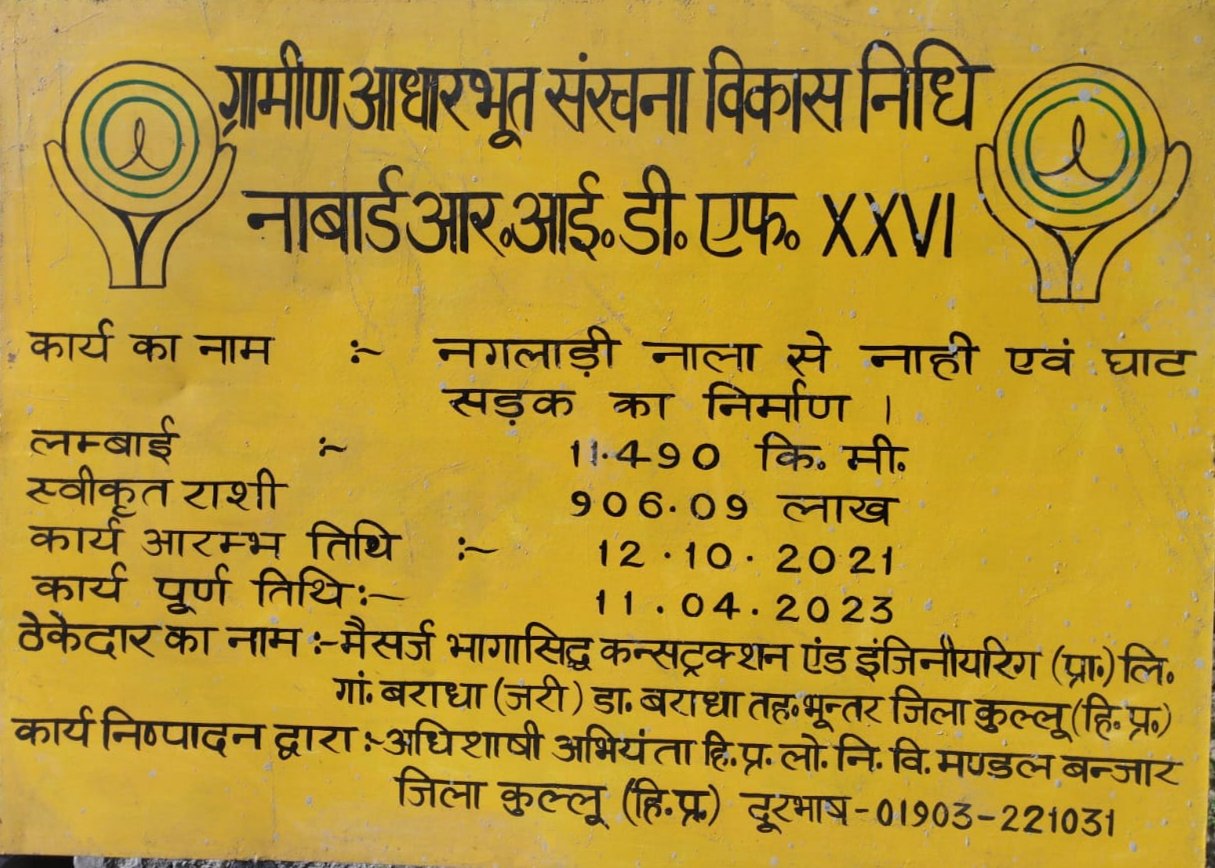 ग्रामीण आधारभूत संरचना विकास निधि
नाबार्ड आर.आई.डी. एफ. XXVI
कार्य का नाम :- नगलाड़ी नाला से नाही एवं घाट
सड़क का निर्माण ।
लम्बाई :- 11.490 कि. मी.
स्वीकृत राशी 906.09 लाख
कार्य आरम्भ तिथि :- 12.10.2021
कार्य पूर्ण तिथि :- 11.04.2023
ठेकेदार का नाम :- मैसर्ज भागासिद्ध कन्सट्रक्शन एंड इंजिनीयरिंग (प्रा.) लि.
गां. बराधा (जरी) डा. बराधा तह. भून्तर जिला कुल्लू (हि. प्र.)
कार्य निष्पादन द्वारा :- अधिशाषी अभियंता हि.प्र. लो. नि. वि. मण्डल बन्जार
जिला कुल्लू (हि.प्र.) दूरभाष - 01903-221031